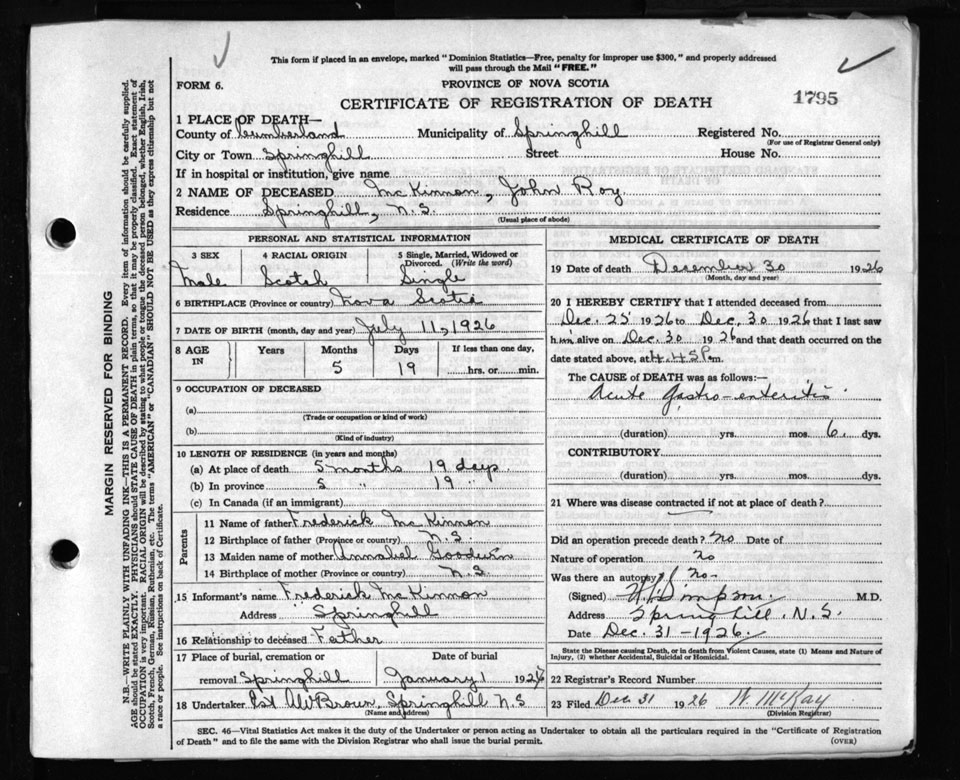 This form if placed in an envelope, marked "Dominion Statistics—Free, penalty for improper use $300," and properly addressed
will pass through the Mail "FREE."
FORM 6.
PROVINCE OF NOVA SCOTIA
CERTIFICATE OF REGISTRATION OF DEATH
1795
1 PLACE OF DEATH—
County of Cumberland Municipality of Springhill Registered No.
(For use of Registrar General only)
City or Town Springhill Street House No.
If in hospital or institution, give name
2 NAME OF DECEASED McKinnon, John Roy.
Residence Springhill, N.S.
(Usual place of abode)
PERSONAL AND STATISTICAL INFORMATION
3 SEX 4 RACIAL ORIGIN 5 Single, Married, Widowed or
Divorced. (Write the word)
Male Scotch Single
6 BIRTHPLACE (Province or country) Nova Scotia
7 DATE OF BIRTH (month, day and year) July 11, 1926
8 AGE IN Years Months Days If less than one day,
5 19 hrs. or min.
9 OCCUPATION OF DECEASED
(a)
(Trade or occupation or kind of work)
(b)
(Kind of industry)
10 LENGTH OF RESIDENCE (in years and months)
(a) At place of death 5 months 19 days
(b) In province 5 " 19 "
(c) In Canada (if an immigrant)
Parents
11 Name of father Frederick McKinnon
12 Birthplace of father (Province or country) N.S.
13 Maiden name of mother Annabel Goodwin
14 Birthplace of mother (Province or country) N.S.
15 Informant's name Frederick McKinnon
Address Springhill
16 Relationship to deceased Father
17 Place of burial, cremation or Date of burial
removal Springhill January 1 1927
18 Undertaker A W Brown, Springhill N S
(Name and address)
MEDICAL CERTIFICATE OF DEATH
19 Date of death December 30 1926
(Month, day and year)
20 I HEREBY CERTIFY that I attended deceased from
Dec. 25 1926 to Dec, 30 1926 that I last saw
him alive on Dec. 30 1926 and that death occurred on the
date stated above, at 4.45 P.m.
The CAUSE of DEATH was as follows:—
Acute Gastro-enteritis
(duration) yrs. mos. 6 dys.
CONTRIBUTORY
(duration) yrs. mos. dys.
21 Where was disease contracted if not at place of death?
Did an operation precede death? No Date of
Nature of operation No
Was there an autopsy? No.
(Signed) Simpson M.D.
Address Spring hill, N.S.
Date Dec. 31-1926.
State the Disease causing Death, or in death from Violent Causes, state (1) Means and Nature of
Injury, (2) whether Accidental, Suicidal or Homicidal.
22 Registrar's Record Number
23 Filed Dec 31 1926 W. McKay
(Division Registrar)
SEC. 46—Vital Statistics Act makes it the duty of the Undertaker or person acting as Undertaker to obtain all the particulars required in the "Certificate of Registration
of Death" and to file the same with the Division Registrar who shall issue the burial permit.
(OVER)
MARGIN RESERVED FOR BINDING
N.B.—WRITE PLAINLY WITH UNFADING INK—THIS IS A PERMANENT RECORD. Every item of information should be carefully supplied.
AGE should be stated EXACTLY. PHYSICIANS should STATE CAUSE OF DEATH in plain terms, so that it may be properly classified. Exact statement of
OCCUPATION is very important. RACIAL ORIGIN will be described by stating to what people or tongue the deceased person belonged, whether English, Irish,
Scotch, French, German, Russian, Ruthenian, etc. The terms "AMERICAN" or "CANADIAN" SHOULD NOT BE USED as they express citizenship but not
a race or people. See instructions on back of Certificate.